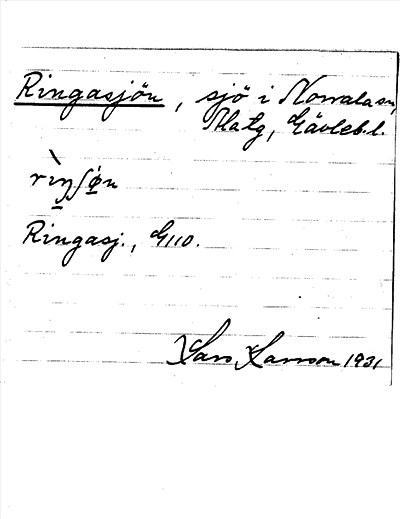 Ringasjön, sjö i Norrala sn,
Ala tg, Gävleb. l.
Ringasj., G110.
Lars Larsson 1931